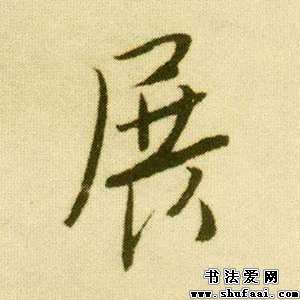 展
书法爱网
www.shufaai.com